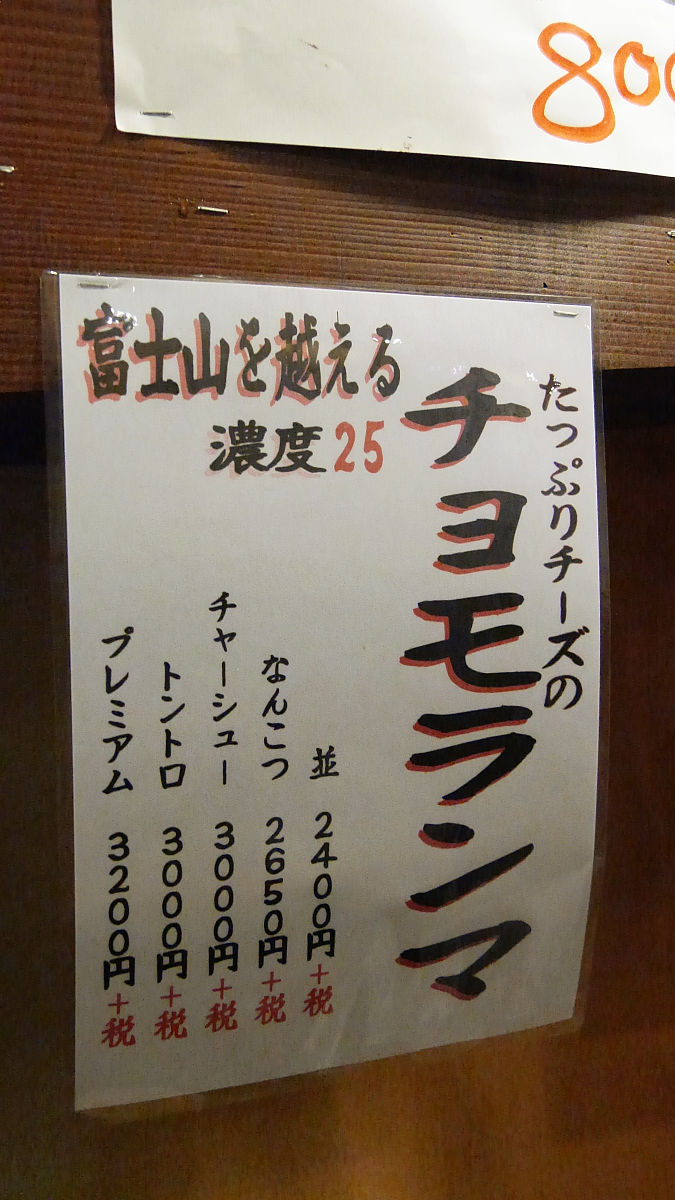 800
富士山を越える
濃度25
たっぷりチーズの
チョモランマ
並 2400円+税
なんこつ 2650円+税
チャーシュー 3000円+税
トントロ 3000円+税
プレミアム 3200円+税